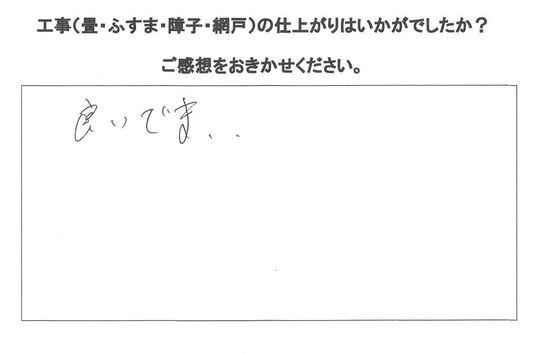 工事(畳・ふすま・障子・網戸)の仕上がりはいかがでしたか?
ご感想をおきかせください。
良いです、、